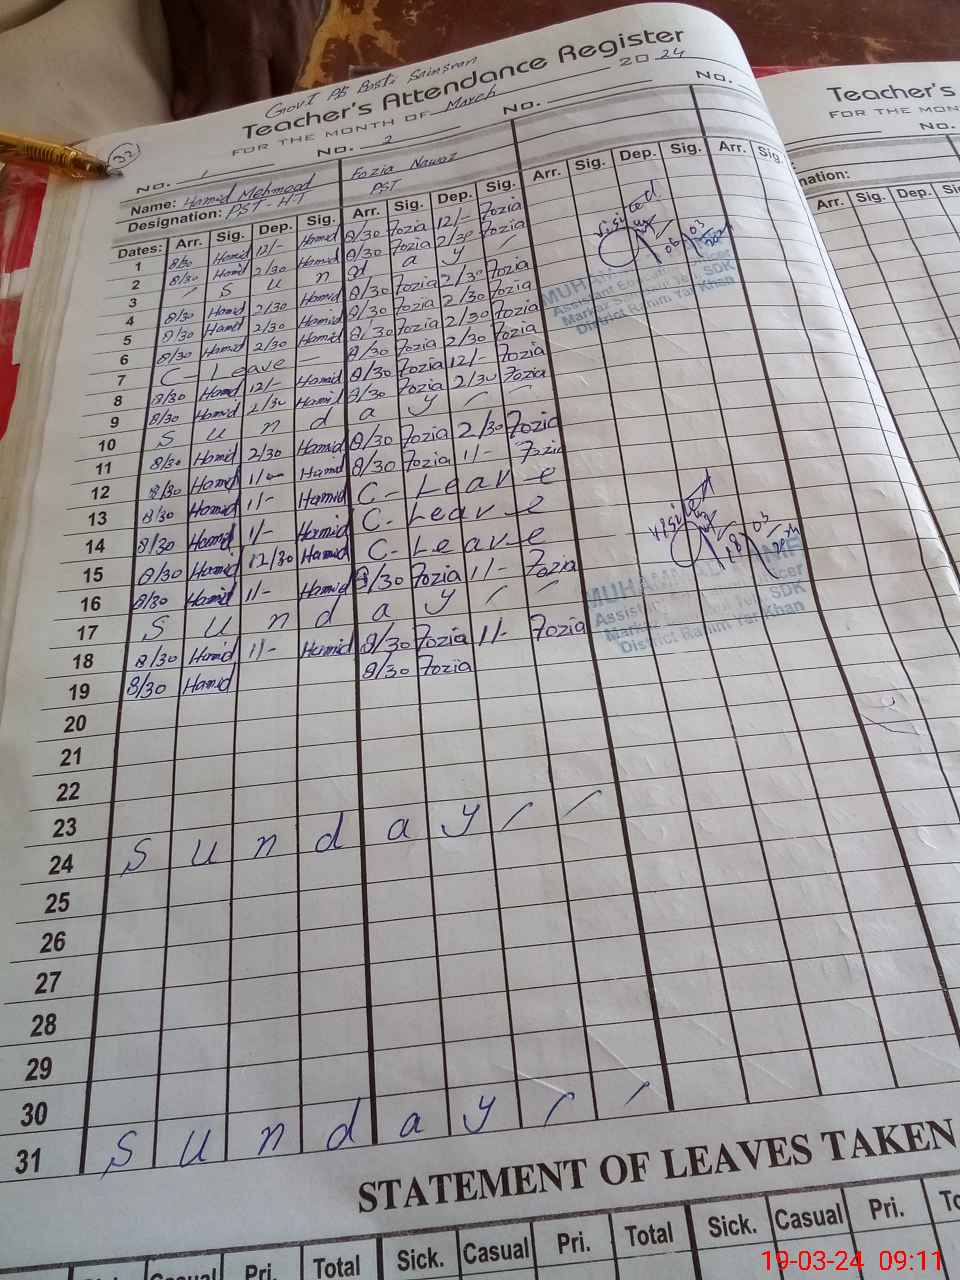 Govt PS Basti Sainsran
Teacher's Attendance Register
FOR THE MONTH OF March 2024
32
No. 1 No. 2 No. No.
Name: Hamid Mehmood Fozia Nawaz
Designation: PST - HT PST
Dates: Arr. Sig. Dep. Sig. Arr. Sig. Dep. Sig. Arr. Sig. Dep. Sig. Arr. Sig.
1 8/30 Hamid 12/- Hamid 8/30 Fozia 12/- Fozia
2 8/30 Hamid 2/30 Hamid 8/30 Fozia 2/30 Fozia
3 S u n d a y
4 8/30 Hamid 2/30 Hamid 8/30 Fozia 2/30 Fozia
5 8/30 Hamid 2/30 Hamid 8/30 Fozia 2/30 Fozia
6 8/30 Hamid 2/30 Hamid 8/30 Fozia 2/30 Fozia
7 C - Leave - 8/30 Fozia 2/30 Fozia
8 8/30 Hamid 12/- Hamid 8/30 Fozia 12/- Fozia
9 8/30 Hamid 2/30 Hamid 8/30 Fozia 2/30 Fozia
10 S u n d a y
11 8/30 Hamid 2/30 Hamid 8/30 Fozia 2/30 Fozia
12 8/30 Hamid 1/00 Hamid 8/30 Fozia 1/- Fozia
13 8/30 Hamid 1/- Hamid C - Leave
14 8/30 Hamid 1/- Hamid C - Leave
15 8/30 Hamid 12/30 Hamid C - Leave
16 8/30 Hamid 1/- Hamid 8/30 Fozia 1/- Fozia
17 S u n d a y
18 8/30 Hamid 1/- Hamid 8/30 Fozia 1/- Fozia
19 8/30 Hamid 8/30 Fozia
20
21
22
23
24 S u n d a y
25
26
27
28
29
30
31 S u n d a y
visited
06/03/2024
Assistant Education Officer
SDK
District Rahim Yar Khan
visited
18/03/2024
MUHAMMAD
officer
SDK
District Rahim Yar Khan
STATEMENT OF LEAVES TAKEN
Sick. Casual Pri. Total Sick. Casual Pri. Total Sick. Casual Pri.
Teacher's
FOR THE MONTH OF
No.
Arr. Sig. Dep. Sig.
19-03-24 09:11